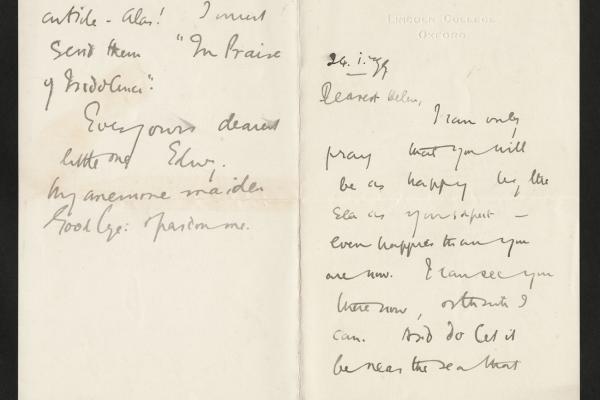 article - Alas! I must
send them "In Praise
of Indolence".
Ever yours dearest
little one Edwy.
My anemone maiden
Goodbye: pardon me.
LINCOLN COLLEGE
OXFORD
24. i. 99
Dearest Helen,
I can only
pray that you will
be as happy by the
sea as you expect —
even happier than you
are now. I can see you
there now, or think I
can. And do let it
be near the sea that